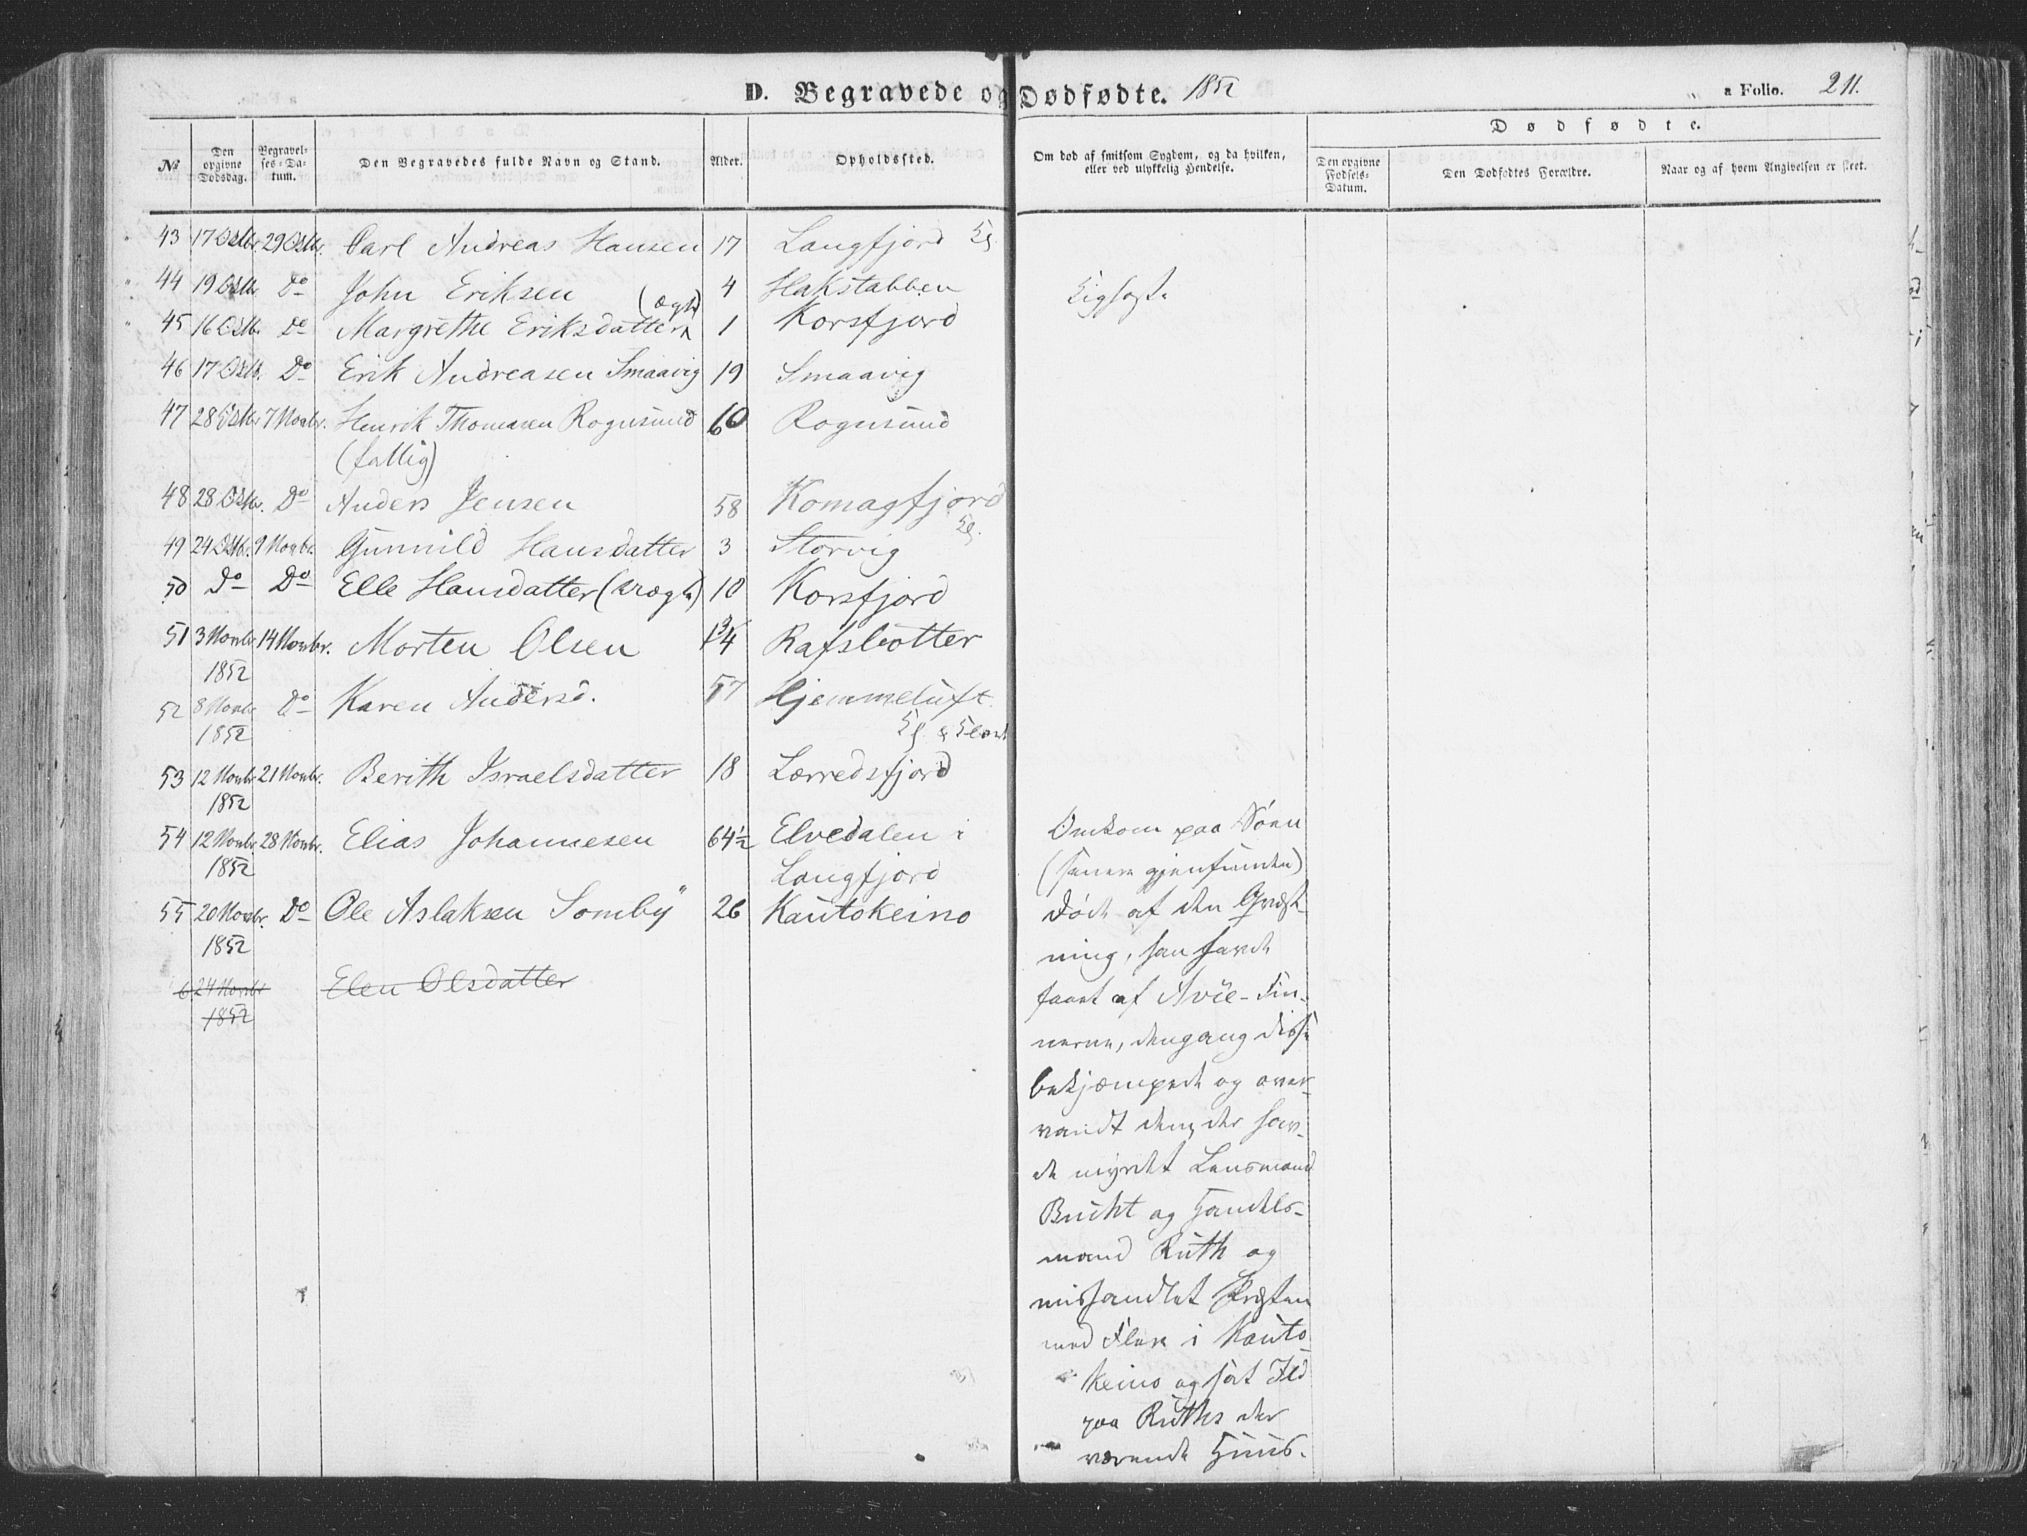 D. Begravede og Dødfødte. 1852 a Folio. 211.
Dødfødte.
No Den opgivne Dødsdag. Begravelses-Datum. Den Begravedes fulde Navn og Stand. Alder. Opholdssted. Om død af smitsom Sygdom, og da hvilken, eller ved ulykkelig Hendelse. Den opgivne Fødsels-Datum. Den Dødfødtes Forældre. Naar og af hvem Angivelsen er skeet.
43 17 Octbr. 29 Octbr. Carl Andreas Hansen 17 Langfjord
44 19 Octbr. Do John Eriksen 4 Hakstabben
45 16 Octbr. Do Margrethe Eriksdatter (ægte) 1 Korsfjord
46 17 Octb. Do Erik Andreasen Smaavig 19 Smaavig
47 28 Octbr. 7 Novbr. Henrik Thomasen Rognsund 60 Rognsund
(fattig)
48 28 Octbr. Do Anders Jensen 58 Komagfjord
49 24 Octbr. 9 Novbr. Gunnild Hansdatter 3 Storvig
50 Do Do Elle Hansdatter (uægte) 10 Korsfjord
51 3 Novbr. 14 Novbr. Morten Olsen 3/4 Rafsbotter
1852
52 8 Novbr. Do Karen Andersd. 57 Hjemmeluft
1852
53 12 Novbr. 21 Novbr. Berith Israelsdatter 18 Lærredsfjord
1852
54 12 Novbr. 28 Novbr. Elias Johannesen 64½ Elvedalen i Omkom paa Søen
1852 Langfjord (senere gjenfunden)
55 20 Novbr. Do Ole Aslaksen Somby 26 Kautokeino Døde af den
1852 han havde
6 24 Novbr Elen Olsdatter faaet af Avie-Fin-
1852
nerne, dengang disse
bekjæmpede og over-
vandt dem, der hav-
de myrdet Lensmand
Bucht og Handels-
mand Ruth og
mishandlet Præsten
med Flere i Kauto
keino og sat Ild
paa Ruths der
værende Huus.